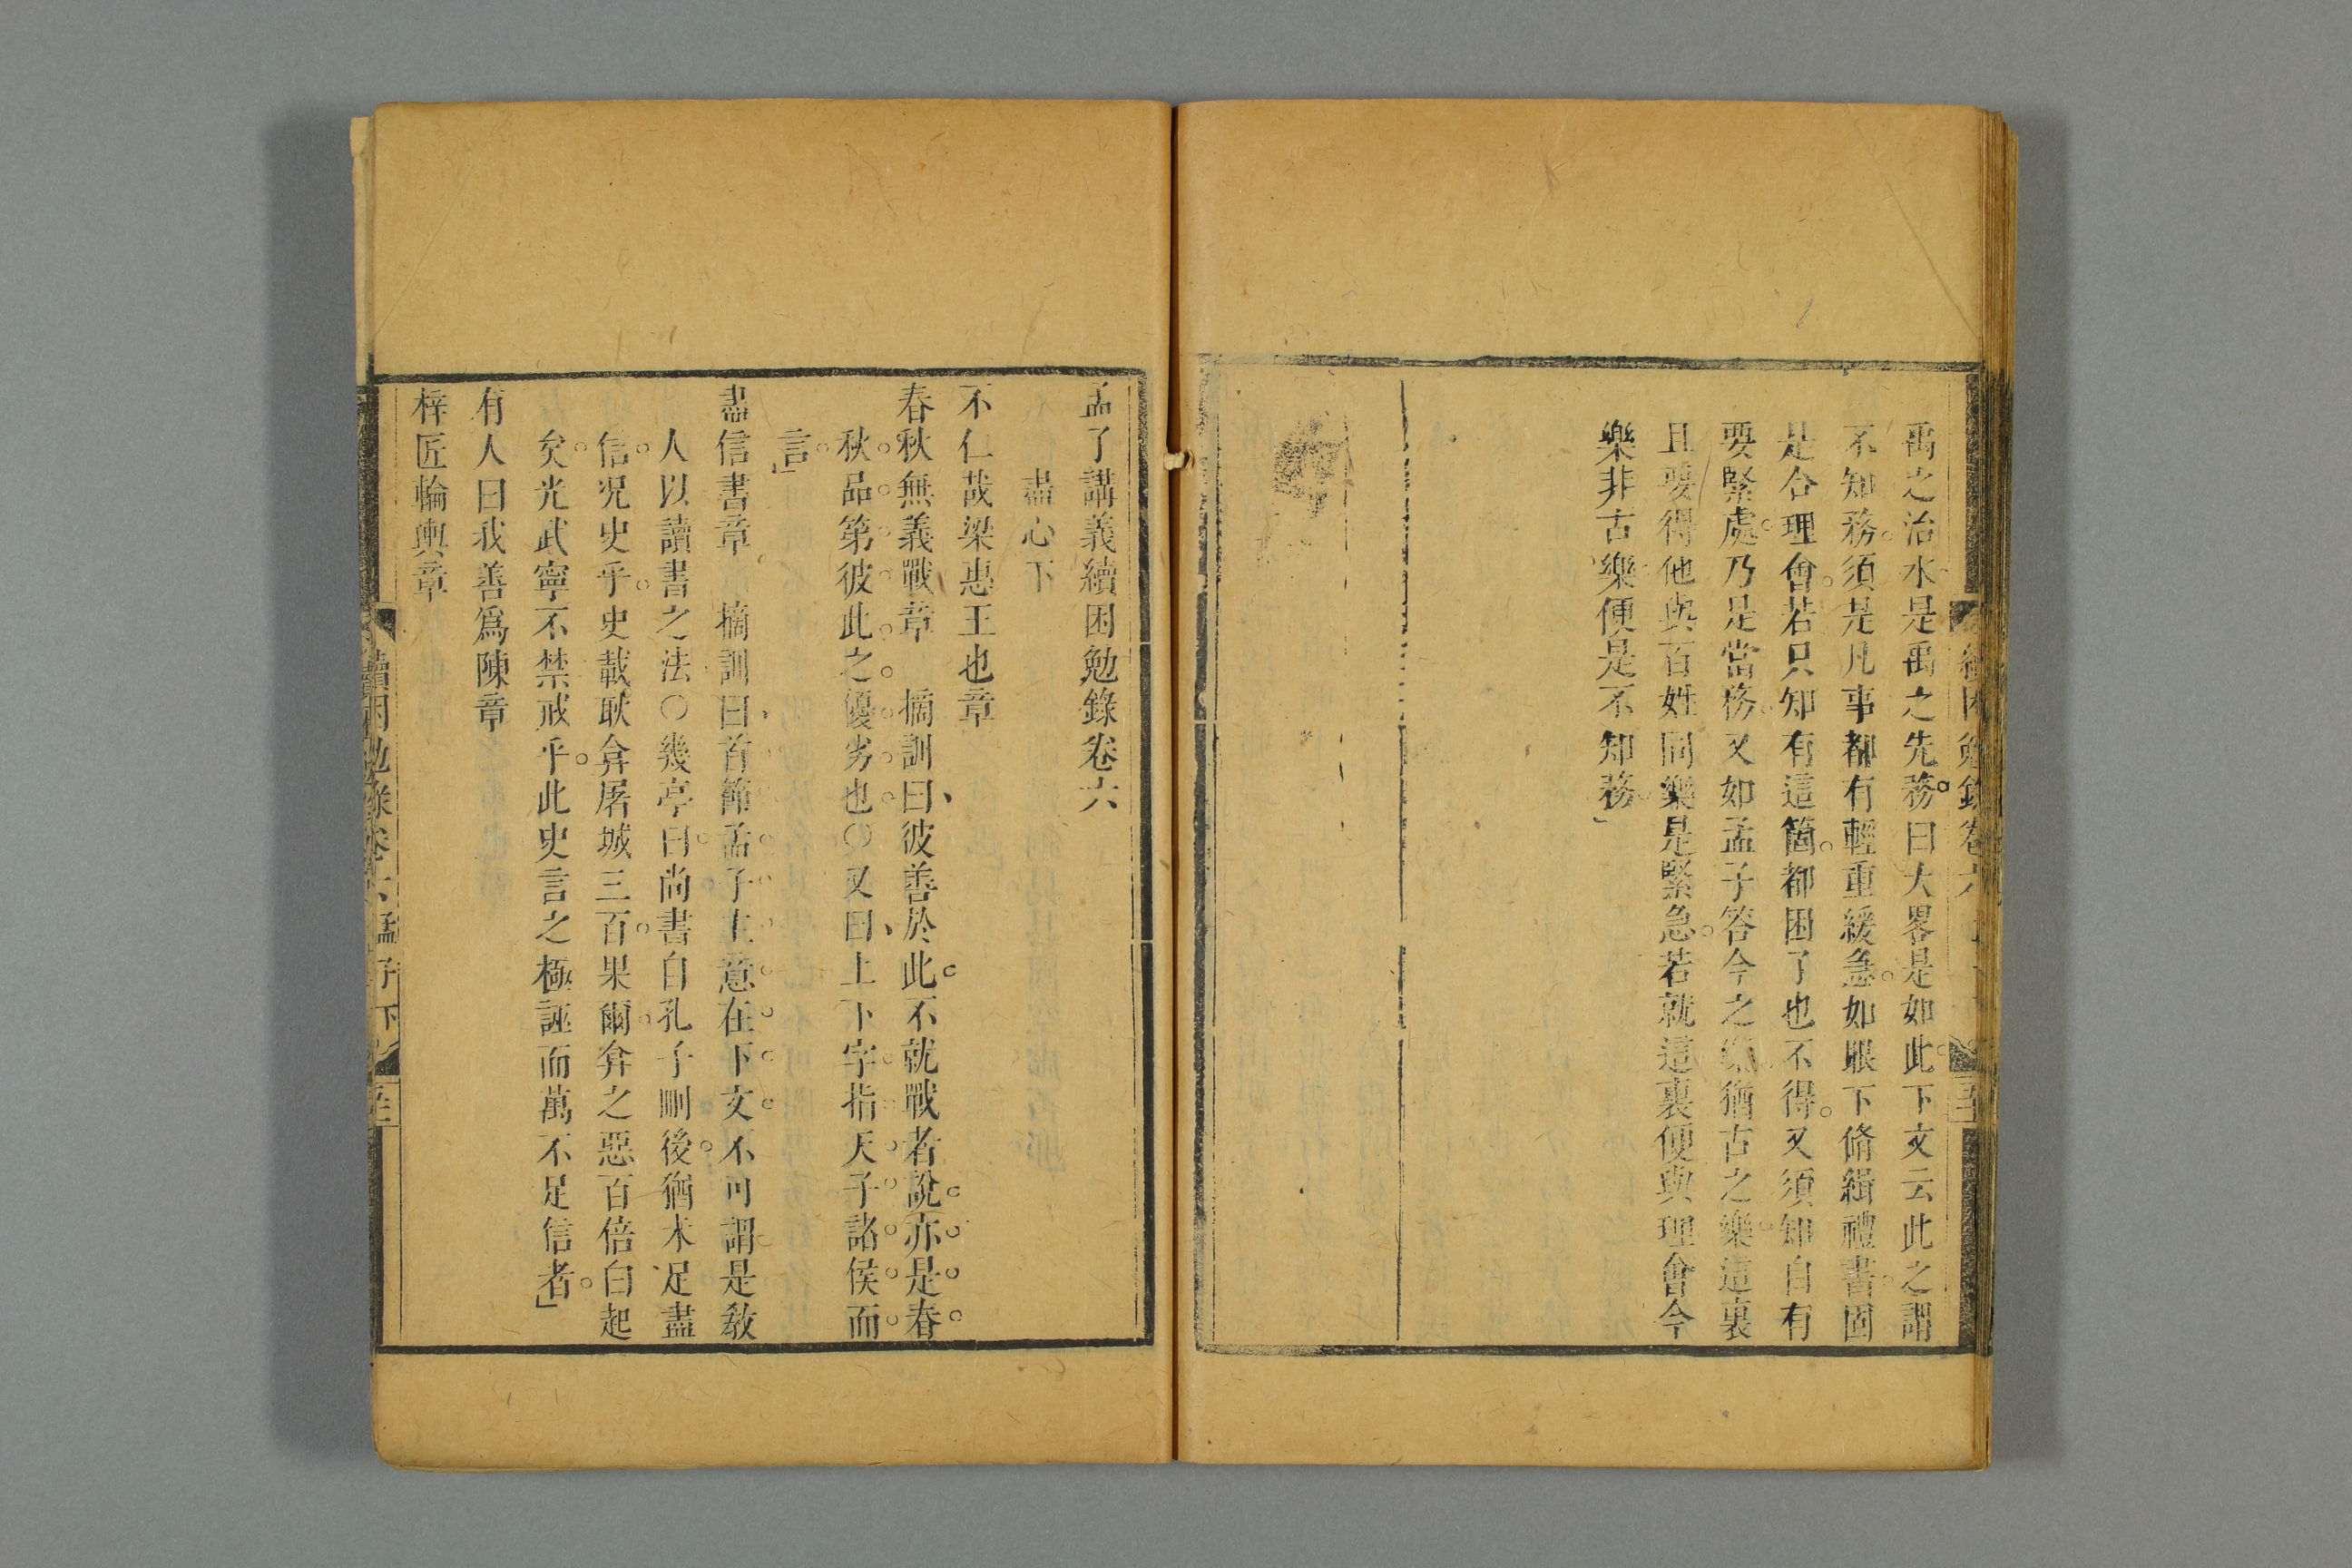 禹之治水是禹之先務曰大畧是如此下文云此之謂
不知務須是凡事都有輕重緩急如眼下脩緝禮書固
是合理會若只知有這箇都困了也不得又須知自有
要緊處乃是當務又如孟子答今之樂猶古之樂這裏
且要得他與百姓同樂是緊急若就這裏便與理會今
樂非古樂便是不知務」
孟子講義續困勉錄卷六
盡心下
不仁哉梁惠王也章
春秋無義戰章 摘訓曰彼善於此不就戰者說亦是春
秋品第彼此之優劣也○又曰上下字指天子諸侯而
言」
盡信書章 摘訓曰首節孟子主意在下文不可謂是教
人以讀書之法○幾亭曰尚書自孔子刪後猶未足盡
信况史乎史載耿弇屠城三百果爾弇之惡百倍白起
矣光武寧不禁戒乎此史言之極誣而萬不足信者」
有人曰我善爲陳章
梓匠輪輿章
續困勉錄卷六孟子下